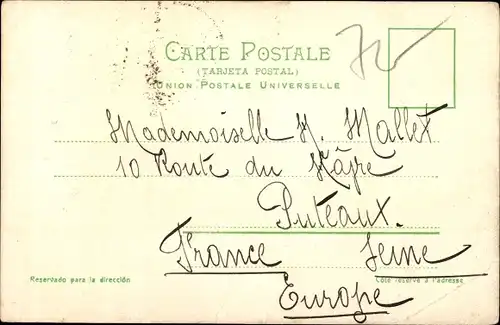 CARTE POSTALE
(TARJETA POSTAL)
UNION POSTALE UNIVERSELLE
Mademoiselle H. Mallet
10 Route du Hâvre
Puteaux.
France Seine
Reservado para la dirección Côté réservé à l'adresse
Europe